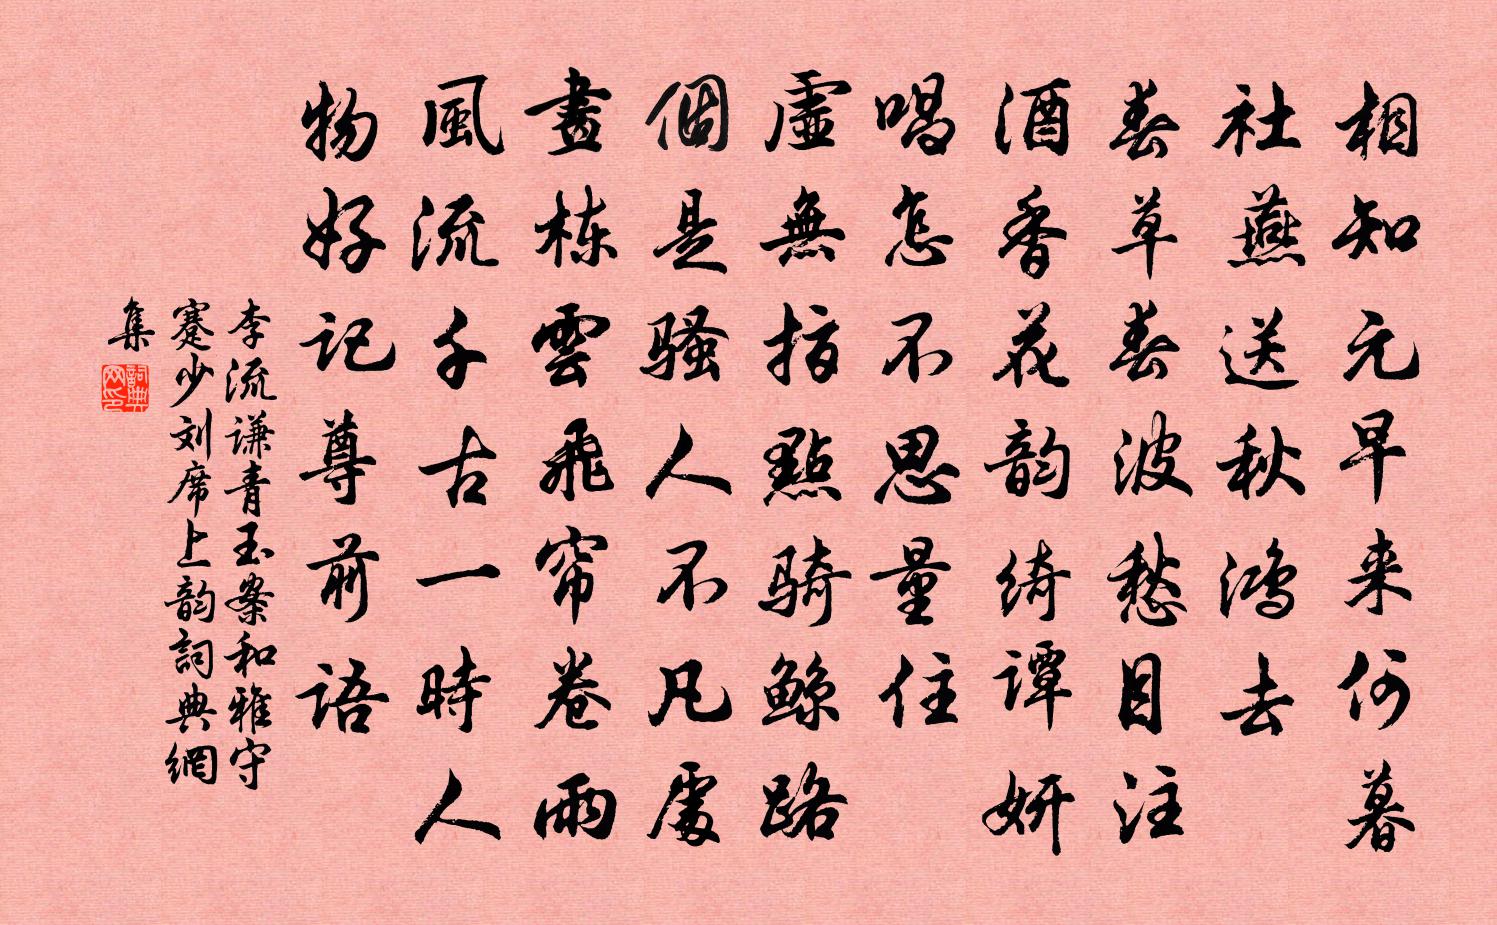 相知元早来何暮
社燕送秋鸿去
春草春波愁目注
酒香花韵绮谭妍
唱怎不思量住
虛無指點骑鲸路
個是骚人不凡處
畫栋雲飛帘卷雨
風流千古一時人
物好记尊前语
李流谦青玉案和雅守
蹇少刘席上韵詞典網
集
詞典网印